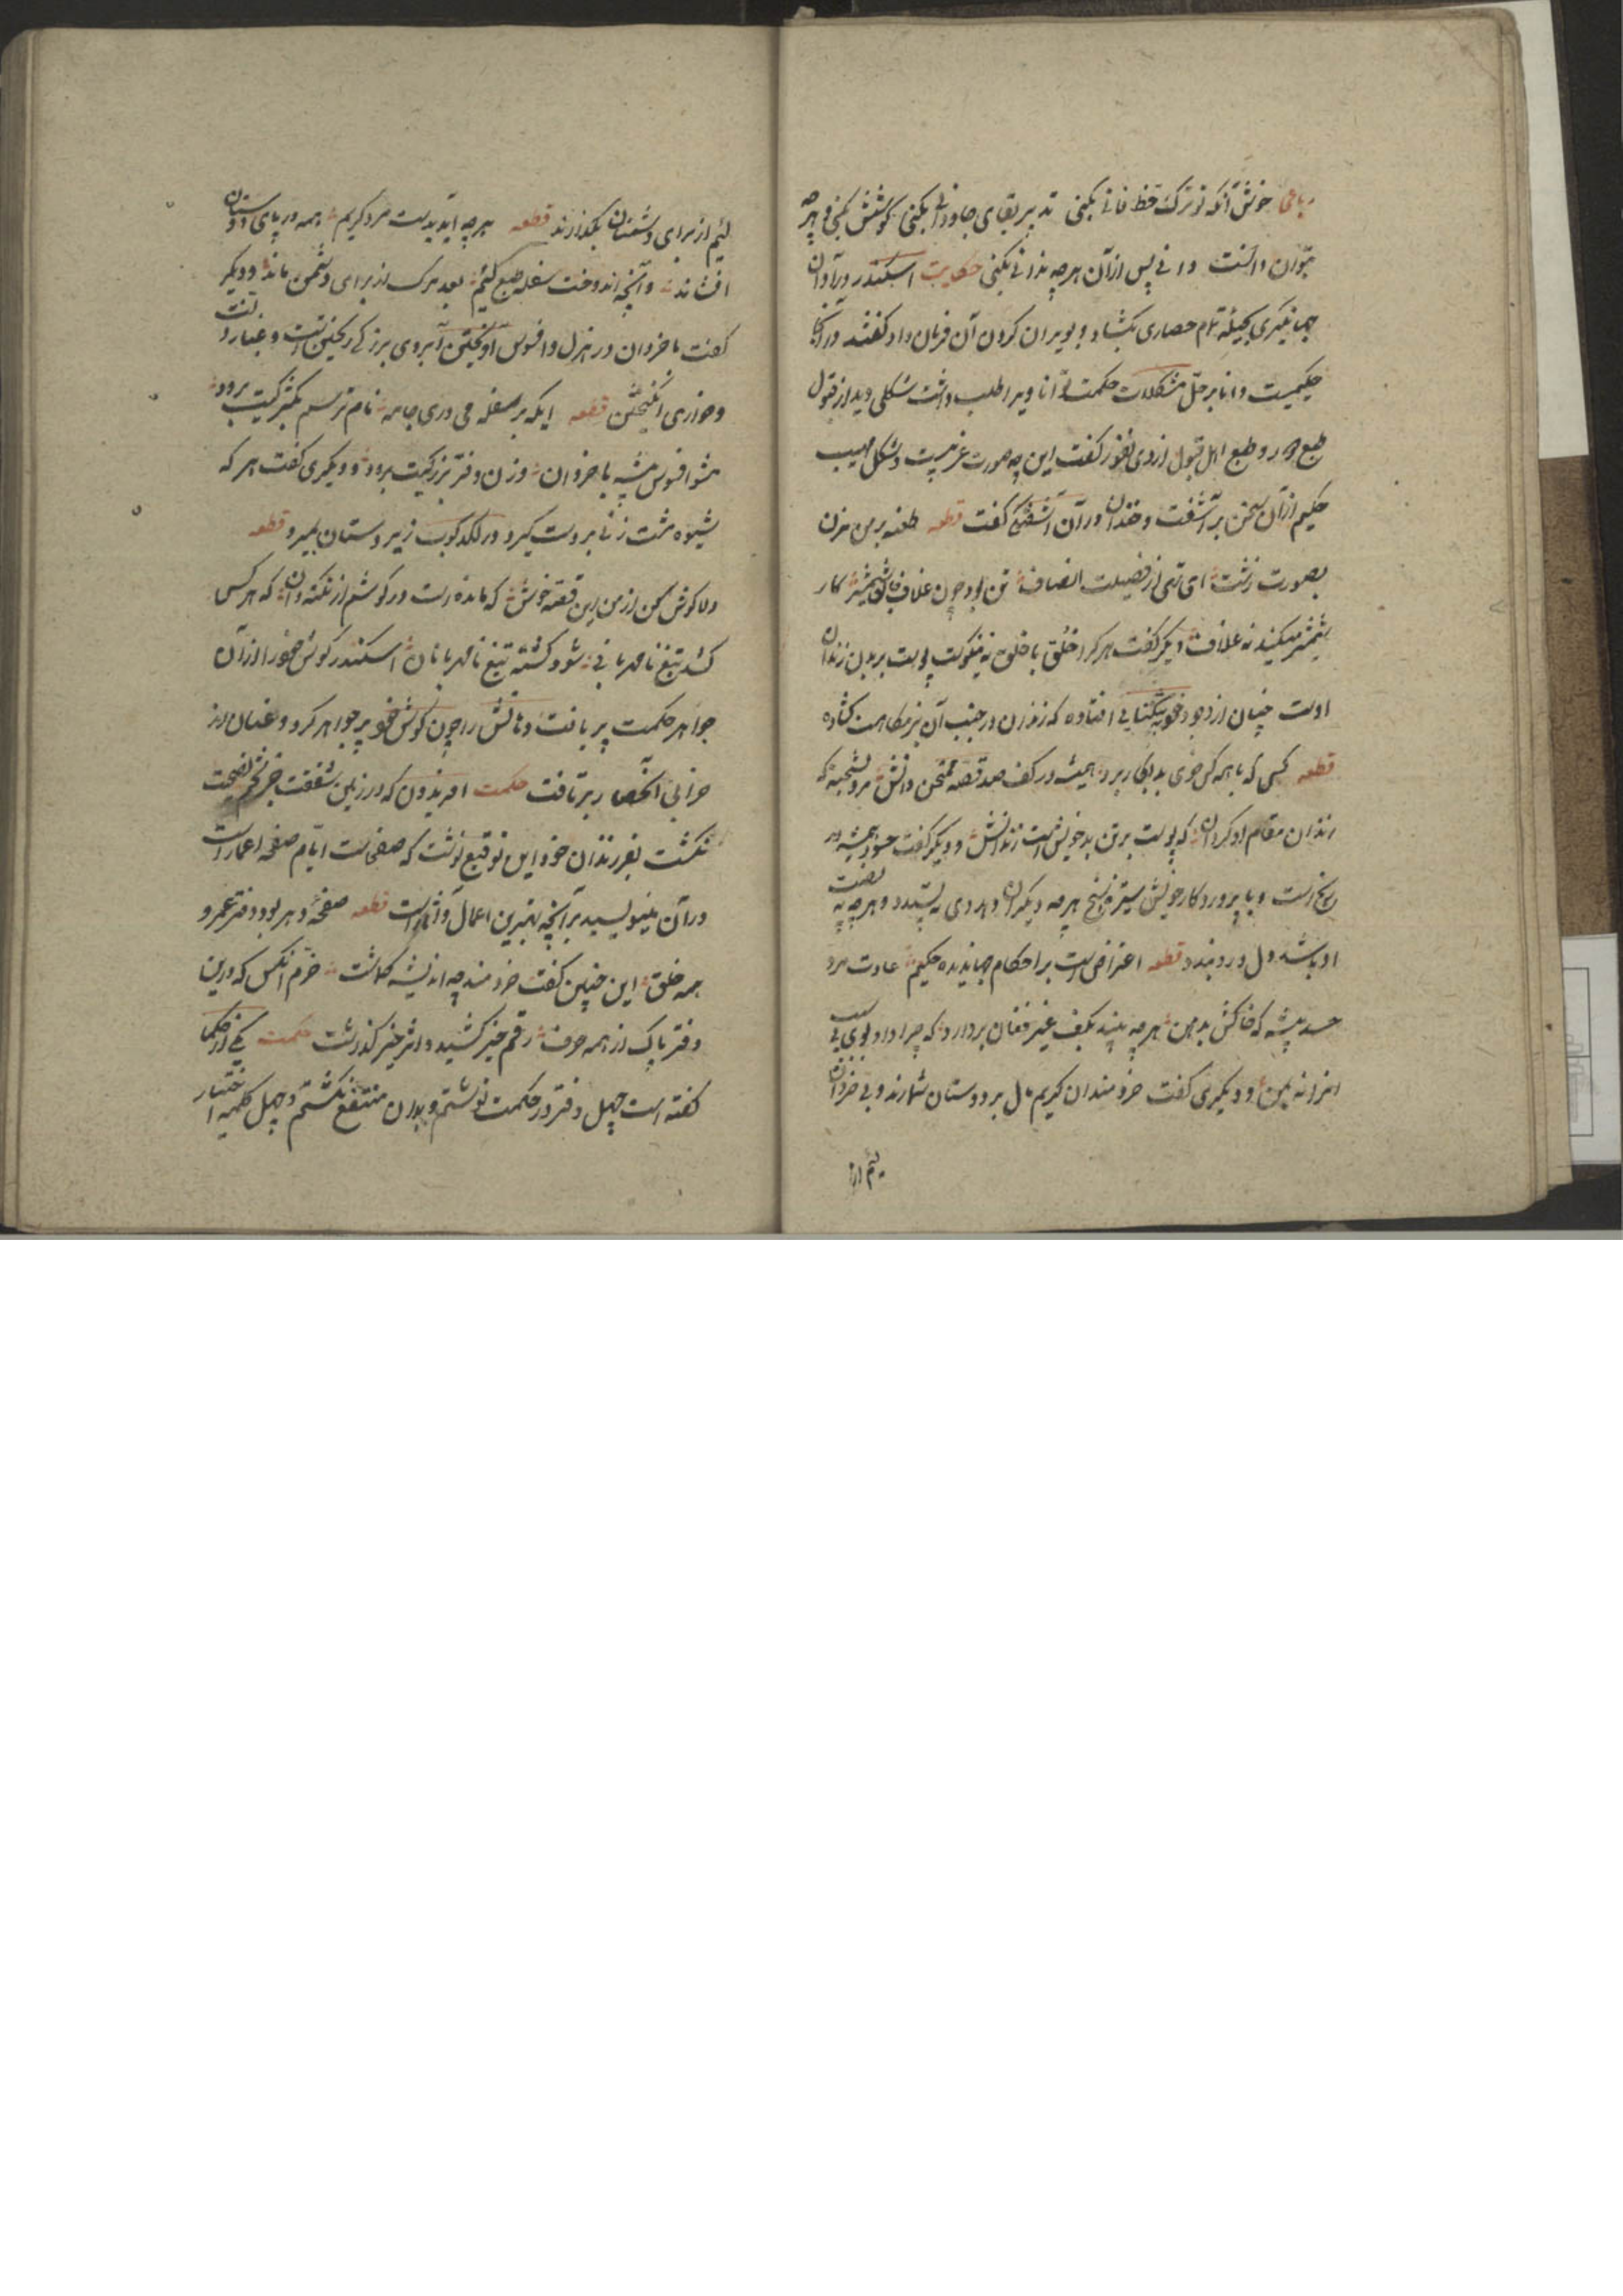 رباعی خوش آنکه تو ترک حظ فانی بکنی تدبیر بقای جاودانی بکنی کوشش بکنی و هر چه
بتوان دانست دانی پس ازان هر چه ندانی بکنی حکایت اسکندر در آوان
جهانگیری بحیله تمام حصاری بکشاد و بویران کردن آن فرمان داد گفتند در آنجا
حکیمیست دانا بر حل مشکلات حکمت توانا ویرا طلب داشت شکلی دید از قبول
طبع دور و طبع اهل قبول ازوی نفور گفت این چه صورت غریبست و شکل مهیب
حکیم ازان سخن برآشفت و خندان در آن آشفتگی گفت قطعه طعنه بر من مزن
بصورت زشت ای تهی از فضیلت انصاف تن بود چون غلاف جان شمشیر کار
شمشیر میکند نه غلاف و دیگر گفت هر کرا خلق با خلق نه نیکوست پوست بر بدن زندان
اوست چنان از وجود خود بتنگنایی افتاده که زندان در جنب آن نزهتگاهیست گشاده
قطعه کسی که با همه کس خوی بد بکار برد همیشه در کف صد غصه ممتحن دانش مرو بشحنه که
زندان مقام او گردان که پوست بر تن بدخویش است زندانش و دیگر گفت حسود همیشه در
رنجست و با پروردگار خویش ستیزه سنج هر چه دیگران را دهد وی نه پسندد و هر چه نه نصیب
او باشد دل درو بندد قطعه اعتراض است بر احکام جهاندیده حکیم عادت مرد
حسد پیشه که خاکش بدهن هر چه بیند بکف غیر فغان بردارد که چرا داد بوی بی سبب
انرا نه بمن و دیگری گفت خردمندان کریم مال بر دوستان شمارند و بی خردان
لئیم از
لئیم از برای دشمنان بگذارند قطعه هر چه آید بدست مرد کریم همه در پای دوستان
افشاند و آنچه اندوخت سفله طبع لئیم بعد مرگ از برای دشمن ماند و دیگر
گفت با خردان در هزل و افسوس آویختن آبروی بزرگی ریختن است و غبار ذلت
و خواری انگیختن قطعه ایکه بر سفله می دری جامه نام ترسم بکمتریت برود
مشو افسوس پیشه با خردان وزن و فر بزرگیت برود و دیگری گفت هر که
شیوه مشت زنی بر دست گیرد در لگدکوب زیر دستان بمیرد قطعه
دلا گوش کن از من این قصه خوش که مانده است در گوشم از نکته دان که هر کس
کشد تیغ نامهربانی شود کشته تیغ نامهربانان اسکندر گوش خود را ازان
جواهر حکمت پر یافت دهانش را چون گوش خود پر جواهر کرد و عنان از
خرابی آنحصار برتافت حکمت افریدون که در زمین شفقت جز تخم نصیحت
نکشت بفرزندان خود این توقیع نوشت که صفحات ایام صفحه اعمار است
در آن منویسید جز آنچه بهترین اعمال و آثار است قطعه صفحه دهر بود دفتر عمر
همه خلق این چنین گفت خردمند چه اندیشه گماشت خرم آنکس که درین
دفتر پاک از همه حرف رقم خیر کشید و اثر خیر گذاشت حکمت یکی از حکما
گفته است چهل دفتر در حکمت نوشتم و بدان منتفع نگشتم و چهل کلمه اختیار